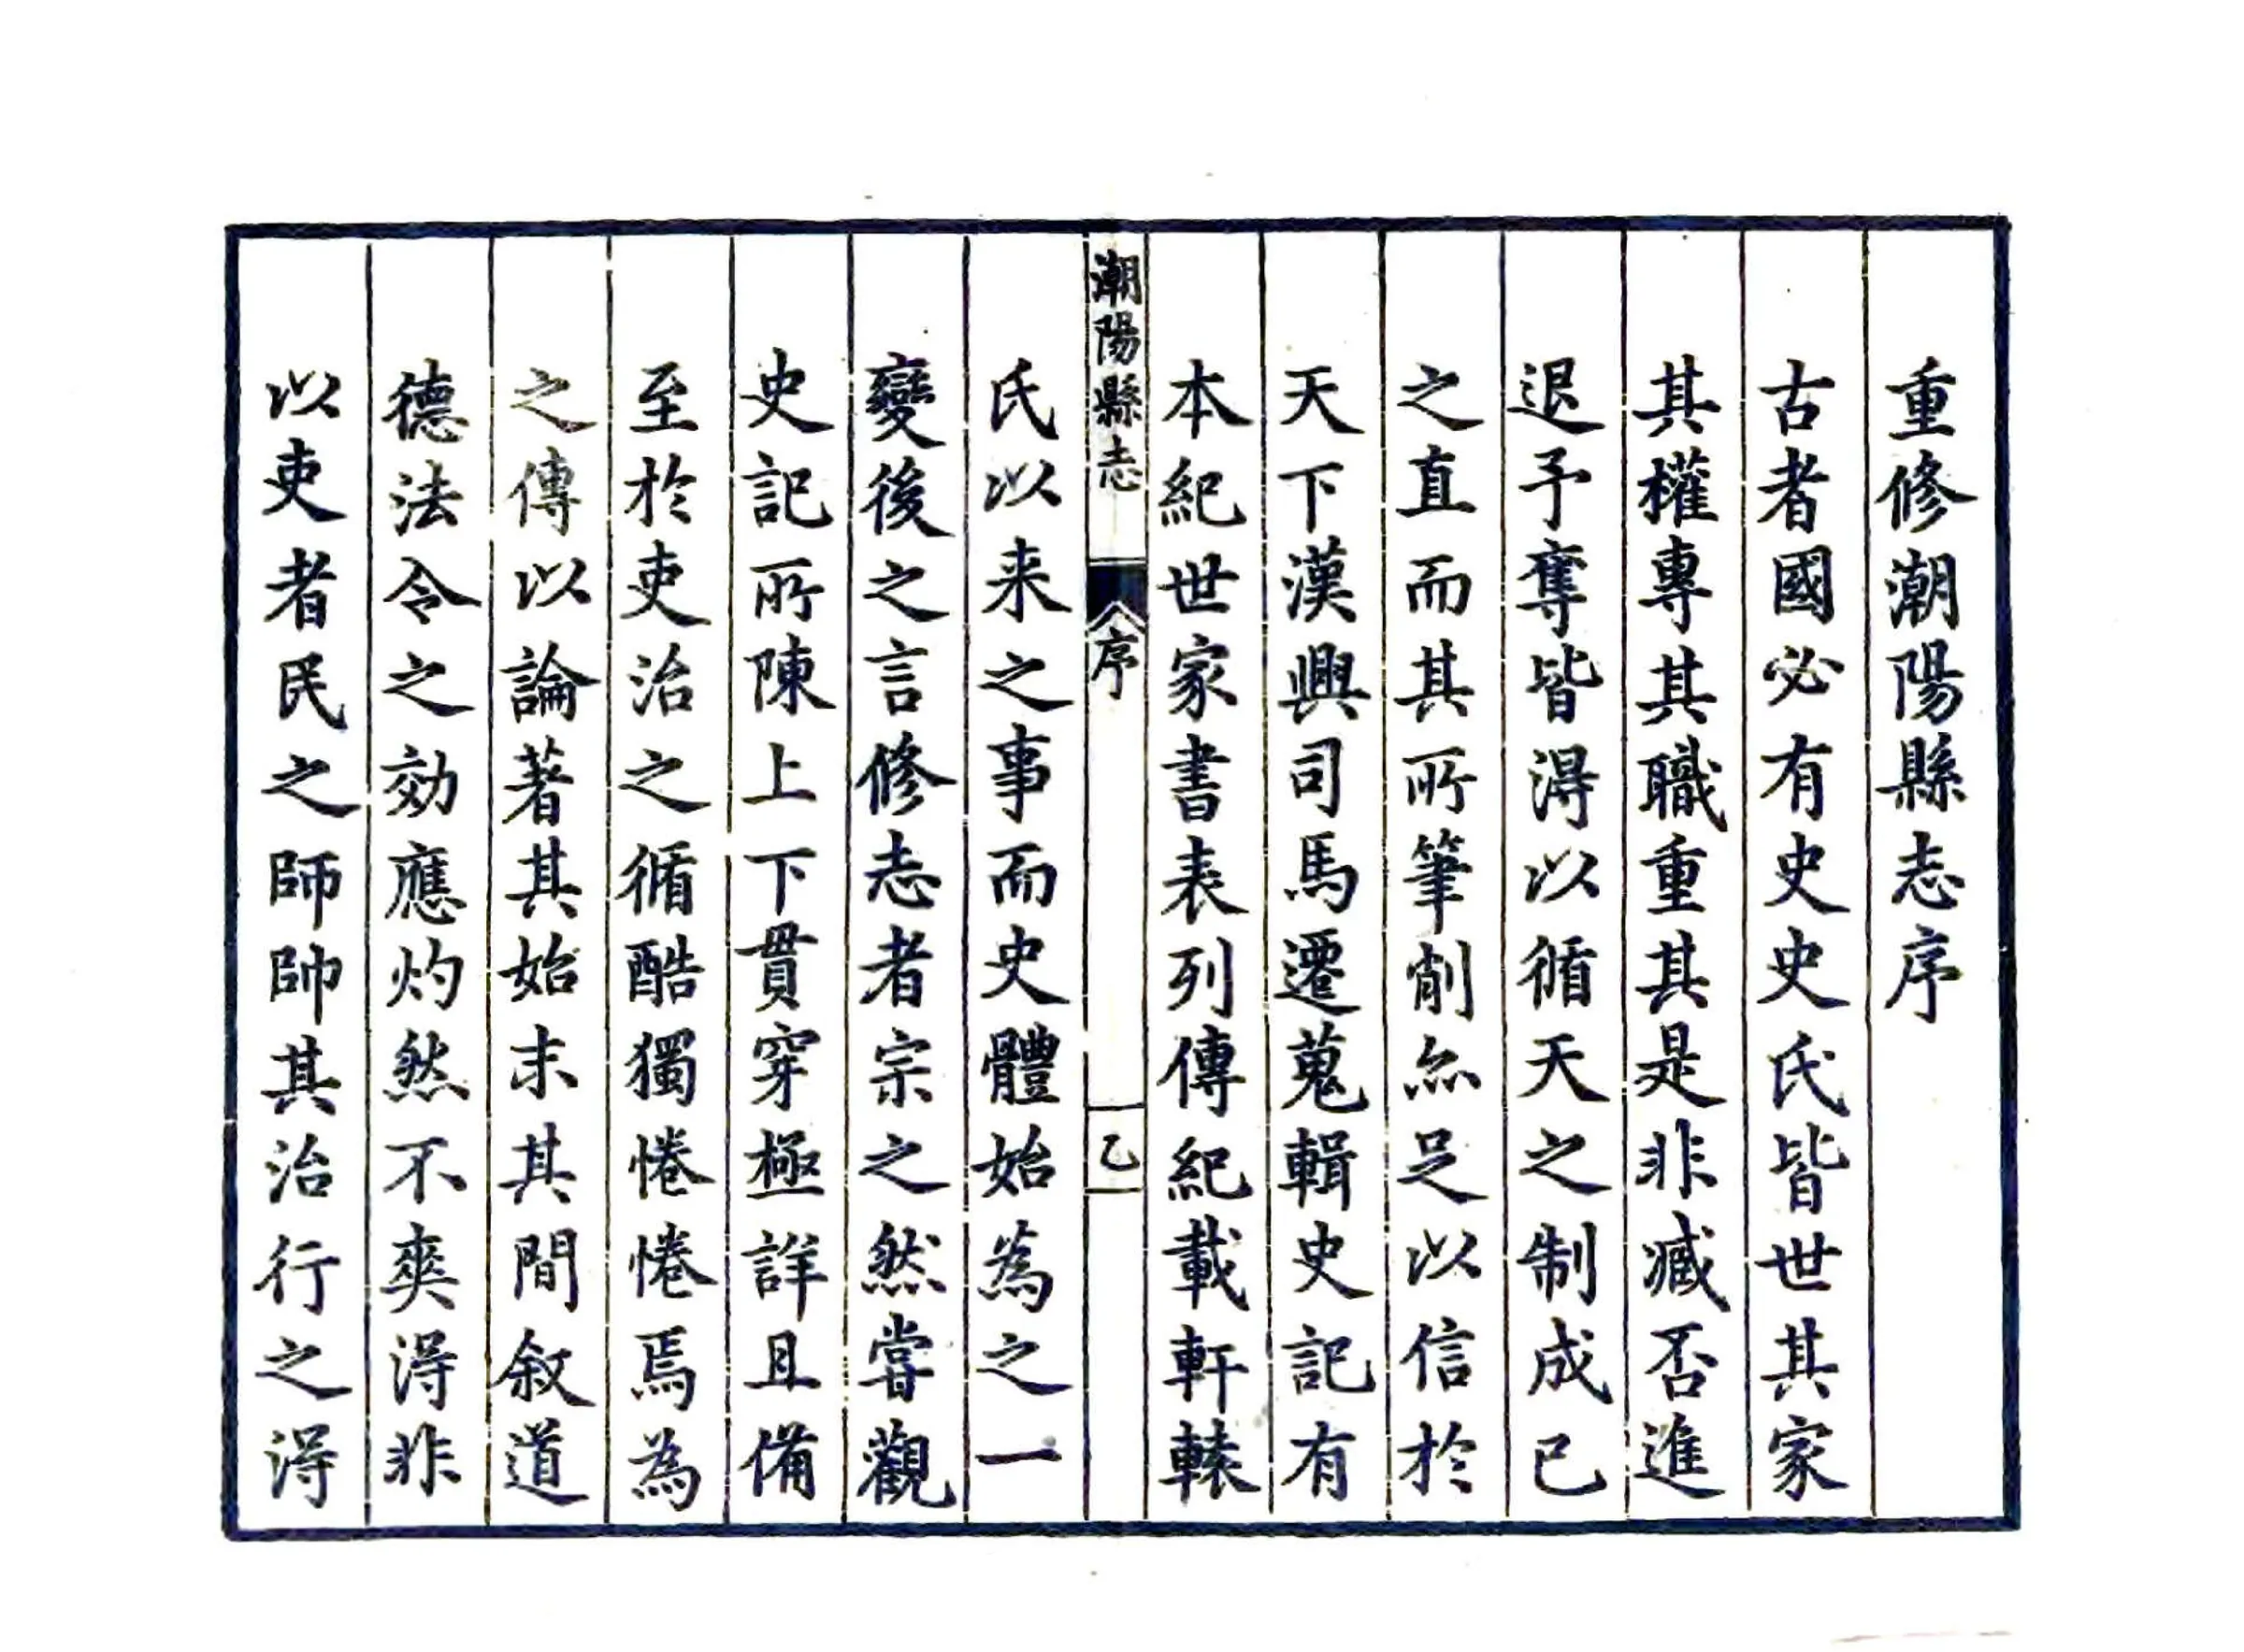 重修潮陽縣志序
古者國必有史史氏皆世其家
其權專其職重其是非臧否進
退予奪皆得以循天之制成已
之直而其所筆削亦足以信於
天下漢興司馬遷蒐輯史記有
本紀世家書表列傳紀載軒轅
潮陽縣志
序
乙
氏以来之事而史體始為之一
變後之言修志者宗之然嘗觀
史記所陳上下貫穿極詳且備
至於吏治之循酷獨惓惓焉為
之傳以論著其始末其間叙道
德法令之効應灼然不爽得非
以吏者民之師帥其治行之得